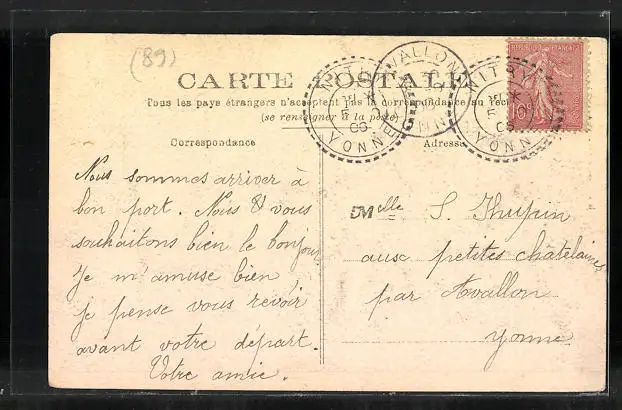 (89)
CARTE POSTALE
Tous les pays étrangers n'acceptent pas la correspondance au recto
(se renseigner à la poste)
Correspondance
Adresse
Nous sommes arriver à
bon port. Nous & vous
souhaitons bien le bonjour
Je m'amuse bien
je pense vous revoir
avant votre départ.
Votre amie.
Melle S. Thupin
aux petites châtelaines
par Avallon
Yonne
REPUBLIQUE FRANÇAISE
AVALLON
YONNE
YONNE